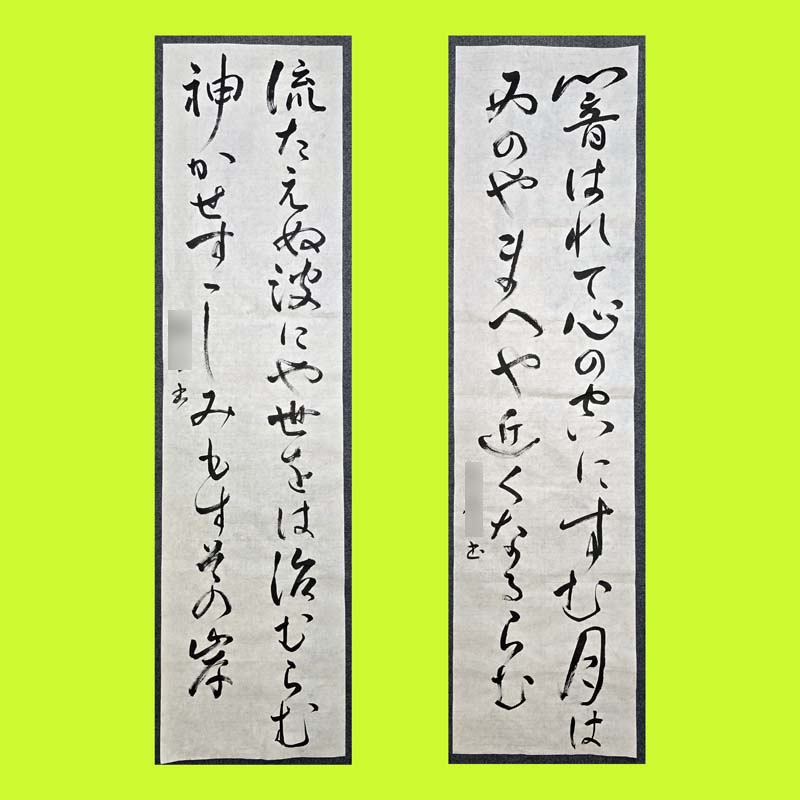 闇はれて心の空にすむ月は
西のやまへや近くなるらむ
書
流たえぬ波にや世をは治むらむ
神かせすゝしみもすその岸
書